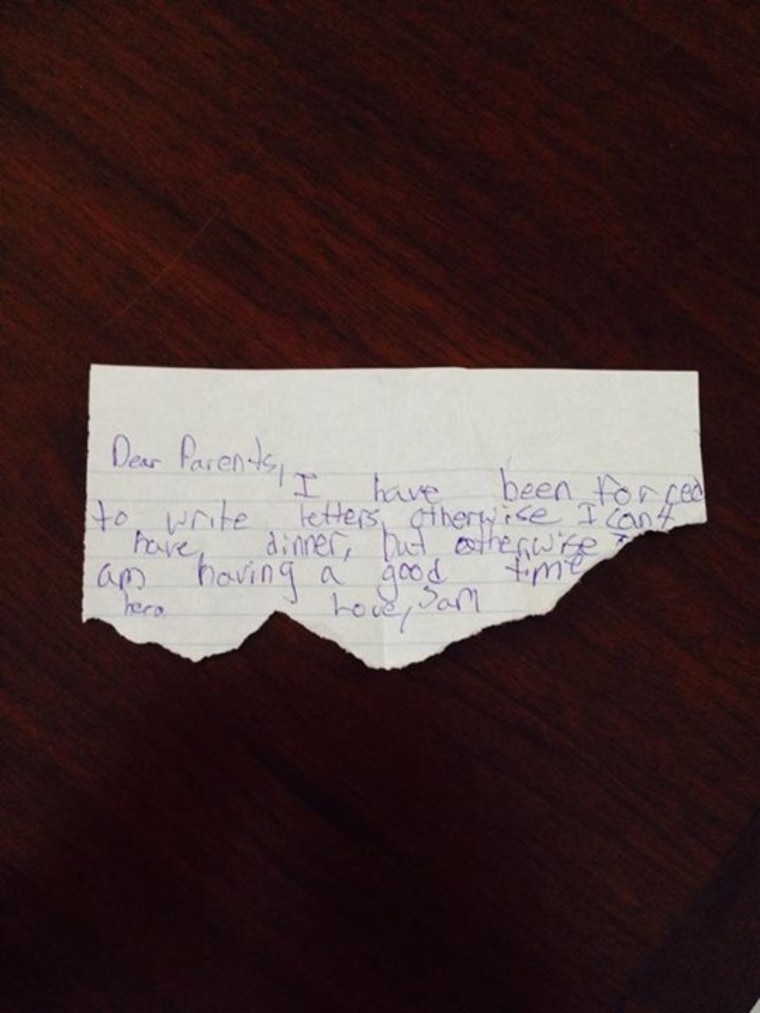 Dear Parents,
I have been forced
to write letters, otherwise I can't
have dinner, but otherwise I
am having a good time
here. Love, Sam